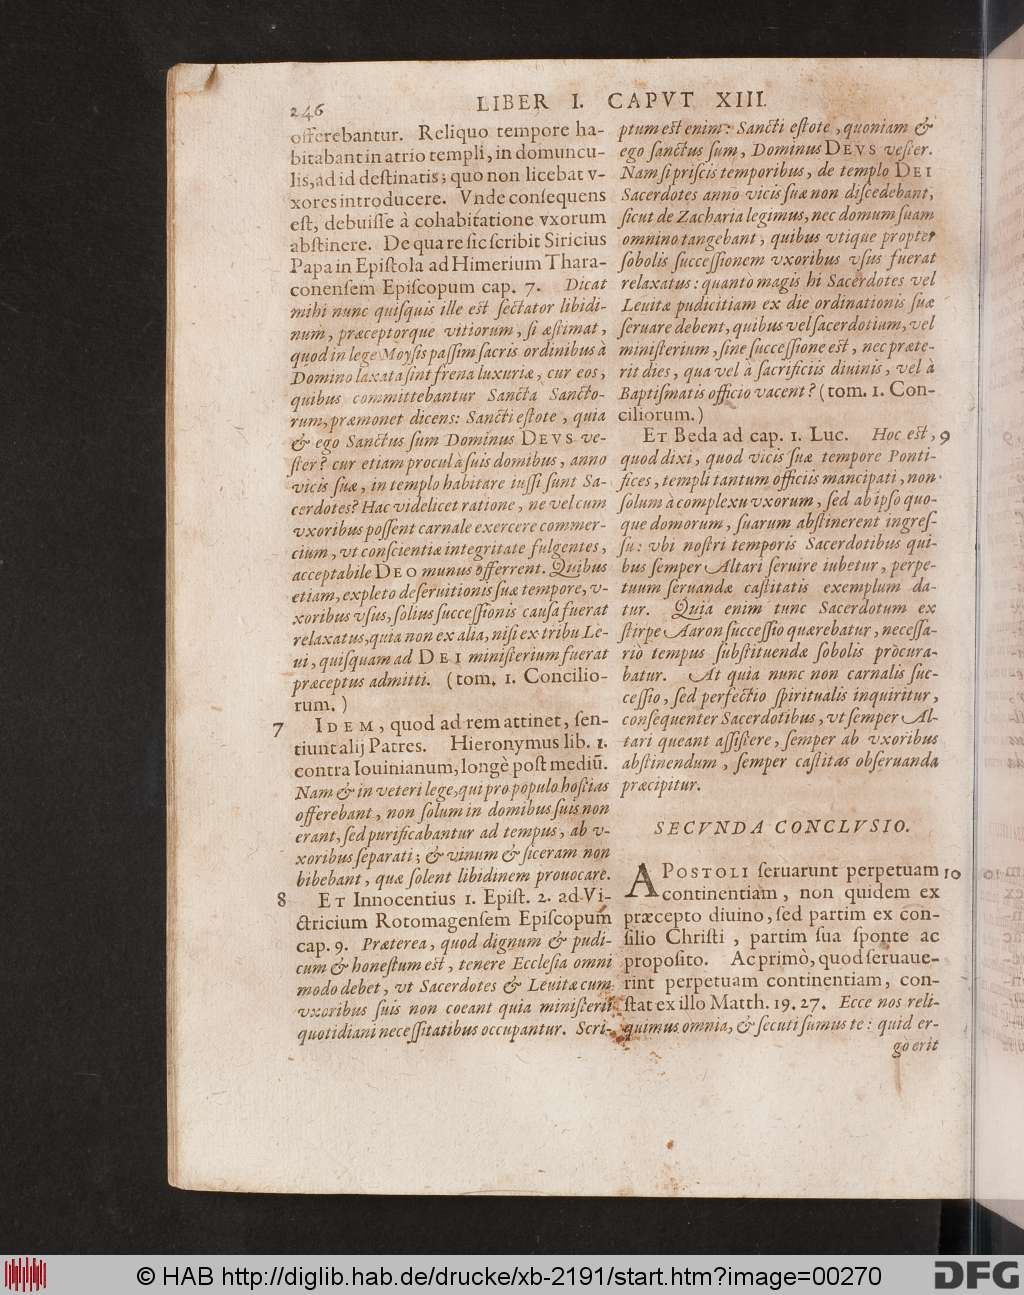 246
LIBER I. CAPVT XIII.
offerebantur. Reliquo tempore ha-
bitabant in atrio templi, in domuncu-
lis, ad id deſtinatis; quo non licebat v-
xores introducere. Vnde conſequens
eſt, debuiſſe à cohabitatione vxorum
abſtinere. De qua re ſic ſcribit Siricius
Papa in Epiſtola ad Himerium Thara-
conenſem Epiſcopum cap. 7. Dicat
mihi nunc quiſquis ille eſt ſectator libidi-
num, præceptorque vitiorum, ſi æſtimat,
quod in lege Moyſis paſſim ſacris ordinibus à
Domino laxata ſint frena luxuriæ, cur eos,
quibus committebantur Sancta Sancto-
rum, præmonet dicens: Sancti eſtote, quia
& ego Sanctus ſum Dominus DEVS ve-
ſter? cur etiam procul à ſuis domibus, anno
vicis ſuæ, in templo habitare iuſſi ſunt Sa-
cerdotes? Hac videlicet ratione, ne vel cum
vxoribus poſſent carnale exercere commer-
cium, vt conſcientiæ integritate fulgentes,
acceptabile DEO munus offerrent. Quibus
etiam, expleto deſeruitionis ſuæ tempore, v-
xoribus vſus, ſolius ſucceſſionis cauſa fuerat
relaxatus, quia non ex alia, niſi ex tribu Le-
ui, quiſquam ad DEI miniſterium fuerat
præceptus admitti. (tom. 1. Concilio-
rum.)
7 IDEM, quod ad rem attinet, ſen-
tiunt alij Patres. Hieronymus lib. 1.
contra Iouinianum, longè poſt mediũ.
Nam & in veteri lege, qui pro populo hoſtias
offerebant, non ſolum in domibus ſuis non
erant, ſed purificabantur ad tempus, ab v-
xoribus ſeparati; & vinum & ſiceram non
bibebant, quæ ſolent libidinem prouocare.
8 ET Innocentius 1. Epiſt. 2. ad Vi-
ctricium Rotomagenſem Epiſcopum
cap. 9. Præterea, quod dignum & pudi-
cum & honeſtum eſt, tenere Eccleſia omni
modo debet, vt Sacerdotes & Leuitæ cum
vxoribus ſuis non coeant quia miniſterii
quotidiani neceſſitatibus occupantur. Scri-
ptum eſt enim: Sancti eſtote, quoniam &
ego ſanctus ſum, Dominus DEVS veſter.
Nam ſi priſcis temporibus, de templo DEI
Sacerdotes anno vicis ſuæ non diſcedebant,
ſicut de Zacharia legimus, nec domum ſuam
omnino tangebant, quibus vtique propter
ſobolis ſucceſſionem vxoribus vſus fuerat
relaxatus: quanto magis hi Sacerdotes vel
Leuitæ pudicitiam ex die ordinationis ſuæ
ſeruare debent, quibus vel ſacerdotium, vel
miniſterium, ſine ſucceſſione eſt, nec præte-
rit dies, qua vel à ſacrificiis diuinis, vel à
Baptiſmatis officio vacent? (tom. 1. Con-
ciliorum.)
ET Beda ad cap. 1. Luc. Hoc eſt, 9
quod dixi, quod vicis ſuæ tempore Ponti-
fices, templi tantum officiis mancipati, non
ſolum à complexu vxorum, ſed ab ipſo quo-
que domorum, ſuarum abſtinerent ingreſ-
ſu: vbi noſtri temporis Sacerdotibus qui-
bus ſemper Altari ſeruire iubetur, perpe-
tuum ſeruandæ caſtitatis exemplum da-
tur. Quia enim tunc Sacerdotum ex
ſtirpe Aaron ſucceſſio quærebatur, neceſſa-
riò tempus ſubſtituendæ ſobolis pròcura-
batur. At quia nunc non carnalis ſuc-
ceſſio, ſed perfectio ſpiritualis inquiritur,
conſequenter Sacerdotibus, vt ſemper Al-
tari queant aſſiſtere, ſemper ab vxoribus
abſtinendum, ſemper caſtitas obſeruanda
præcipitur.
SECVNDA CONCLVSIO.
APOSTOLI ſeruarunt perpetuam 10
continentiam, non quidem ex
præcepto diuino, ſed partim ex con-
ſilio Chriſti, partim ſua ſponte ac
propoſito. Ac primò, quod ſeruaue-
rint perpetuam continentiam, con-
ſtat ex illo Matth. 19. 27. Ecce nos reli-
quimus omnia, & ſecuti ſumus te: quid er-
go erit
© HAB http://diglib.hab.de/drucke/xb-2191/start.htm?image=00270
DFG